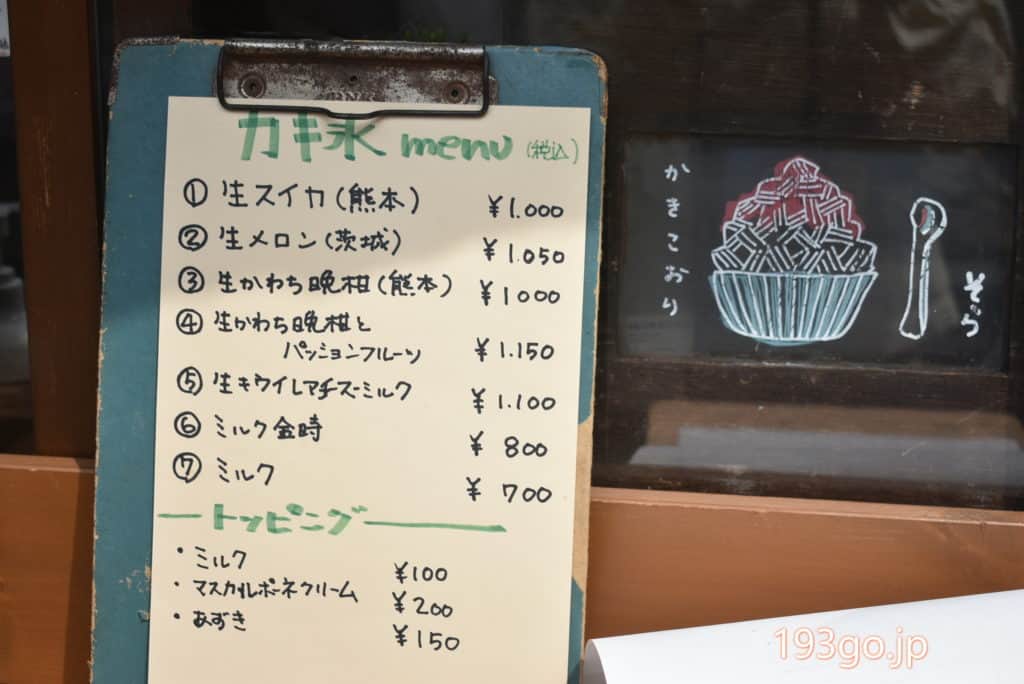 カキ氷 menu (税込)
① 生スイカ(熊本) ¥1.000
② 生メロン(茨城) ¥1.050
③ 生かわち晩柑(熊本) ¥1000
④ 生かわち晩柑と
パッションフルーツ ¥1.150
⑤ 生キウイレアチーズミルク ¥1.100
⑥ ミルク金時 ¥800
⑦ ミルク ¥700
トッピング
・ミルク ¥100
・マスカルポーネクリーム ¥200
・あずき ¥150
かきこおり
そら
193go.jp